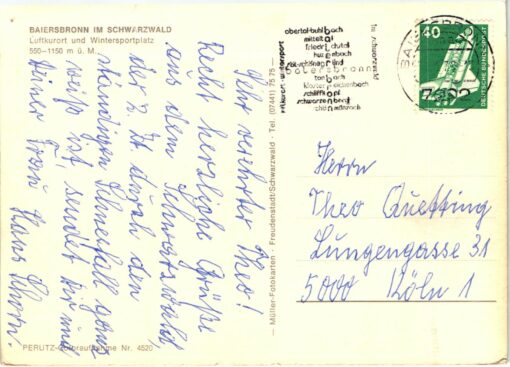 BAIERSBRONN IM SCHWARZWALD
Luftkurort und Wintersportplatz
550–1150 m ü. M.
Sehr verehrter Theo!
Recht herzliche Grüße
aus dem Schwarzwald
der z. Zt. durch den
ständigen Schneefall ganz
weiß ist, sendet Dir und
Deiner Frau Hans
— Müller-Fotokarten · Freudenstadt/Schwarzwald · Tel. (07441) 75 75 —
PERUTZ-Coloraufnahme Nr. 4520
luftkurort · wintersport
obertal·buhlbach
mitteltal
friedrichstal
huzenbach
baiersbronn
tonbach
schwarzenberg
im schwarzwald
BAIERSBRONN
7292
40
DEUTSCHE BUNDESPOST
Herrn
Theo Quetting
Lungengasse 31
5000 Köln 1